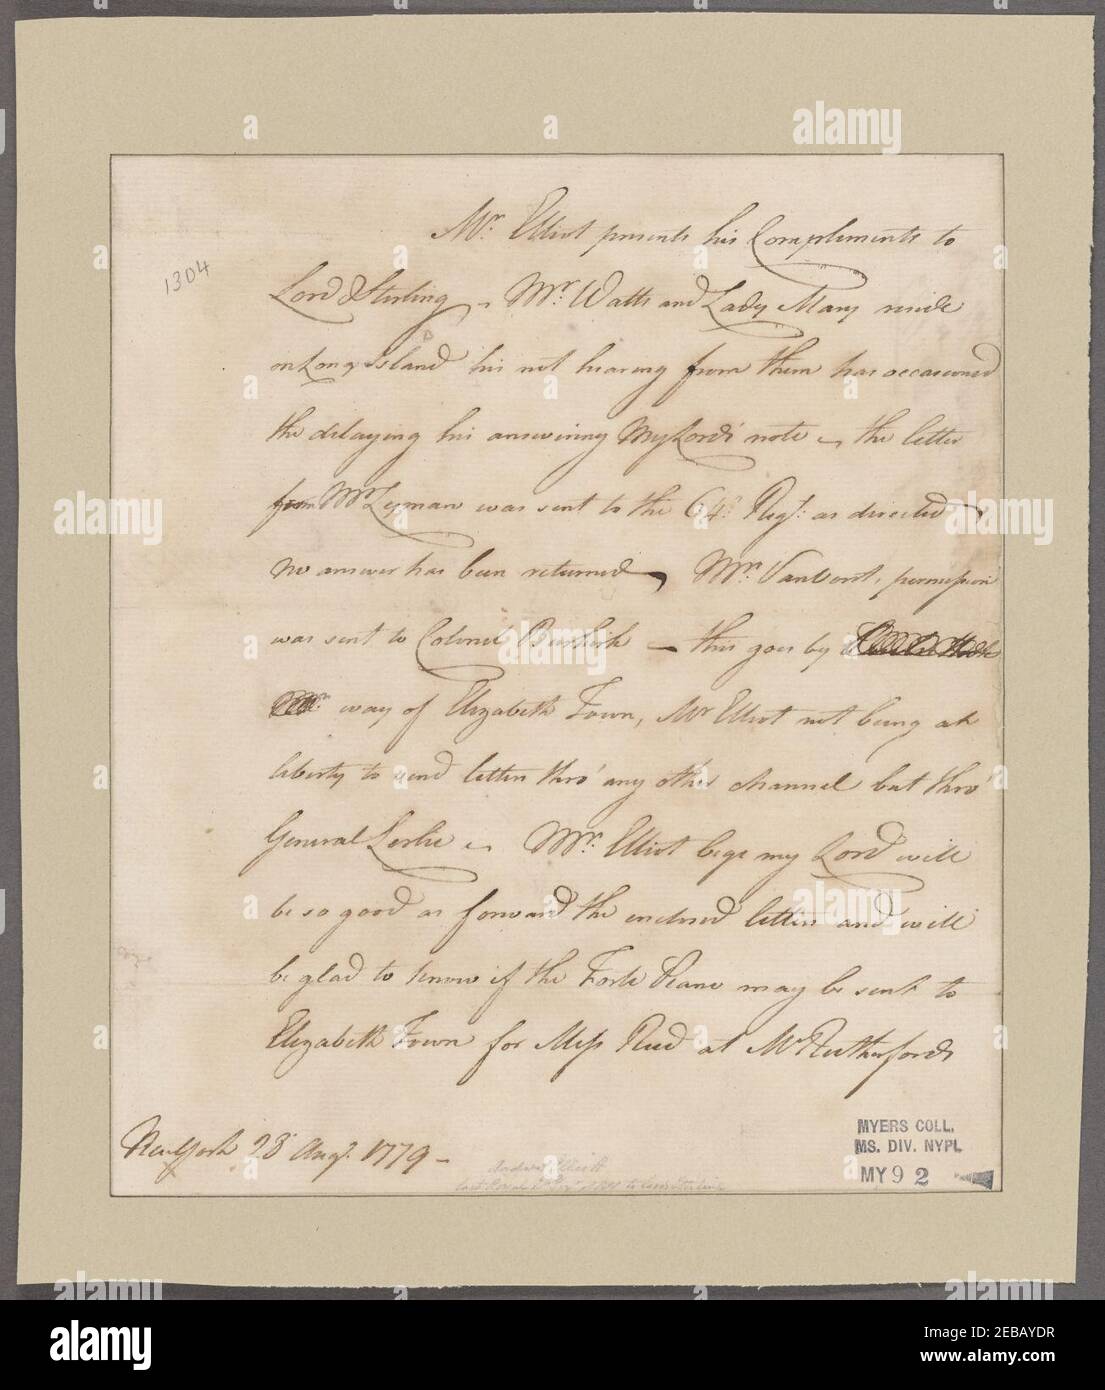 1304
Mr. Elliot presents his Compliments to
Lord Sterling - Mr. Watts and Lady Mary reside
on Long Island his not hearing from them has occasioned
the delaying his answering My Lords' note - the letter
from Mr Lyman was sent to the 64th Regt: as directed
no answer has been returned, Mrs. permission
was sent to Colonel Buskirk - this goes by
way of Elizabeth Town, Mr Elliot not being at
liberty to send letters thro' any other channel but thro'
General Leslie - Mr. Elliot begs my Lord will
be so good as forward the inclosed letters and will
be glad to know if the Forte Piano may be sent to
Elizabeth Town for Miss Reed at Mr Rutherfords
New York 28 Augt. 1779 -
Andrew Elliott
MYERS COLL.
MS. DIV. NYPL
MY 92
alamy
a
alamy
Image ID: 2EBAYDR
www.alamy.com